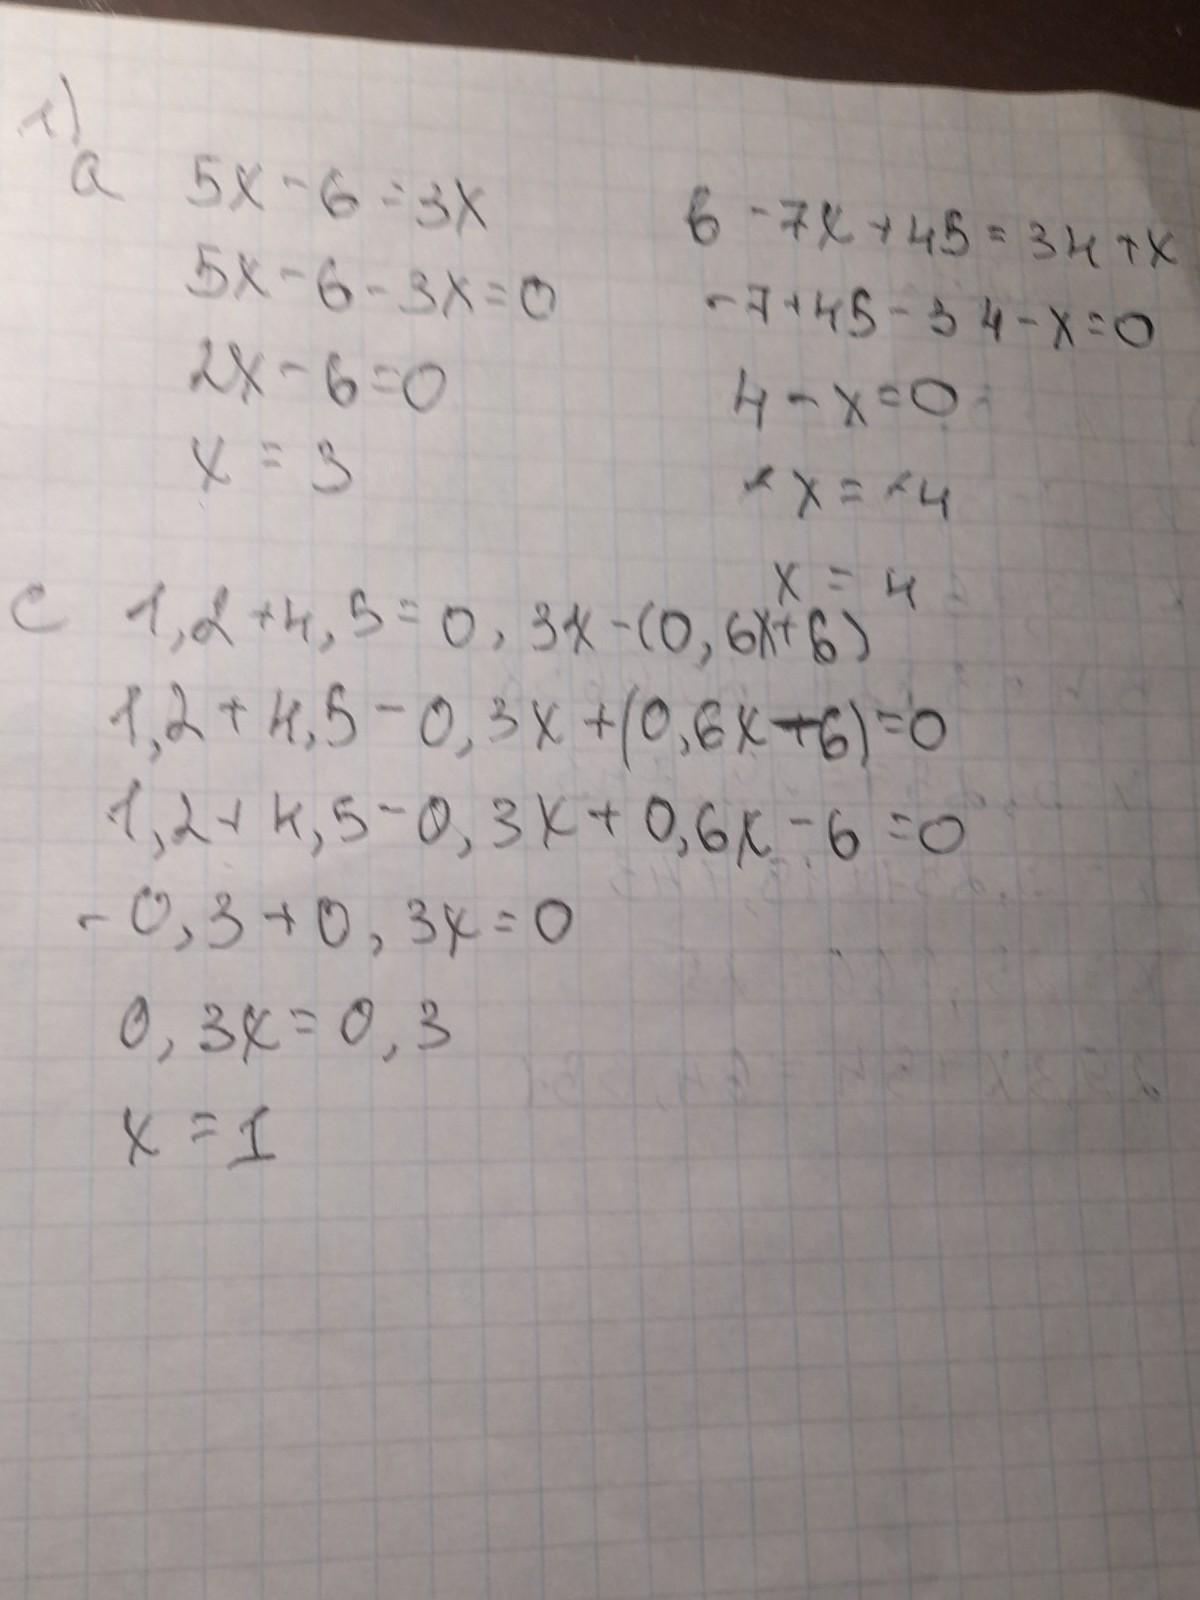 1)
a 5x-6=3x
5x-6-3x=0
2x-6=0
x=3
б -7x+45=34+x
-7+45-34-x=0
4-x=0
-x=-4
x=4
c 1,2+4,5=0,3x-(0,6x+6)
1,2+4,5-0,3x+(0,6x+6)=0
1,2+4,5-0,3x+0,6x-6=0
-0,3+0,3x=0
0,3x=0,3
x=1